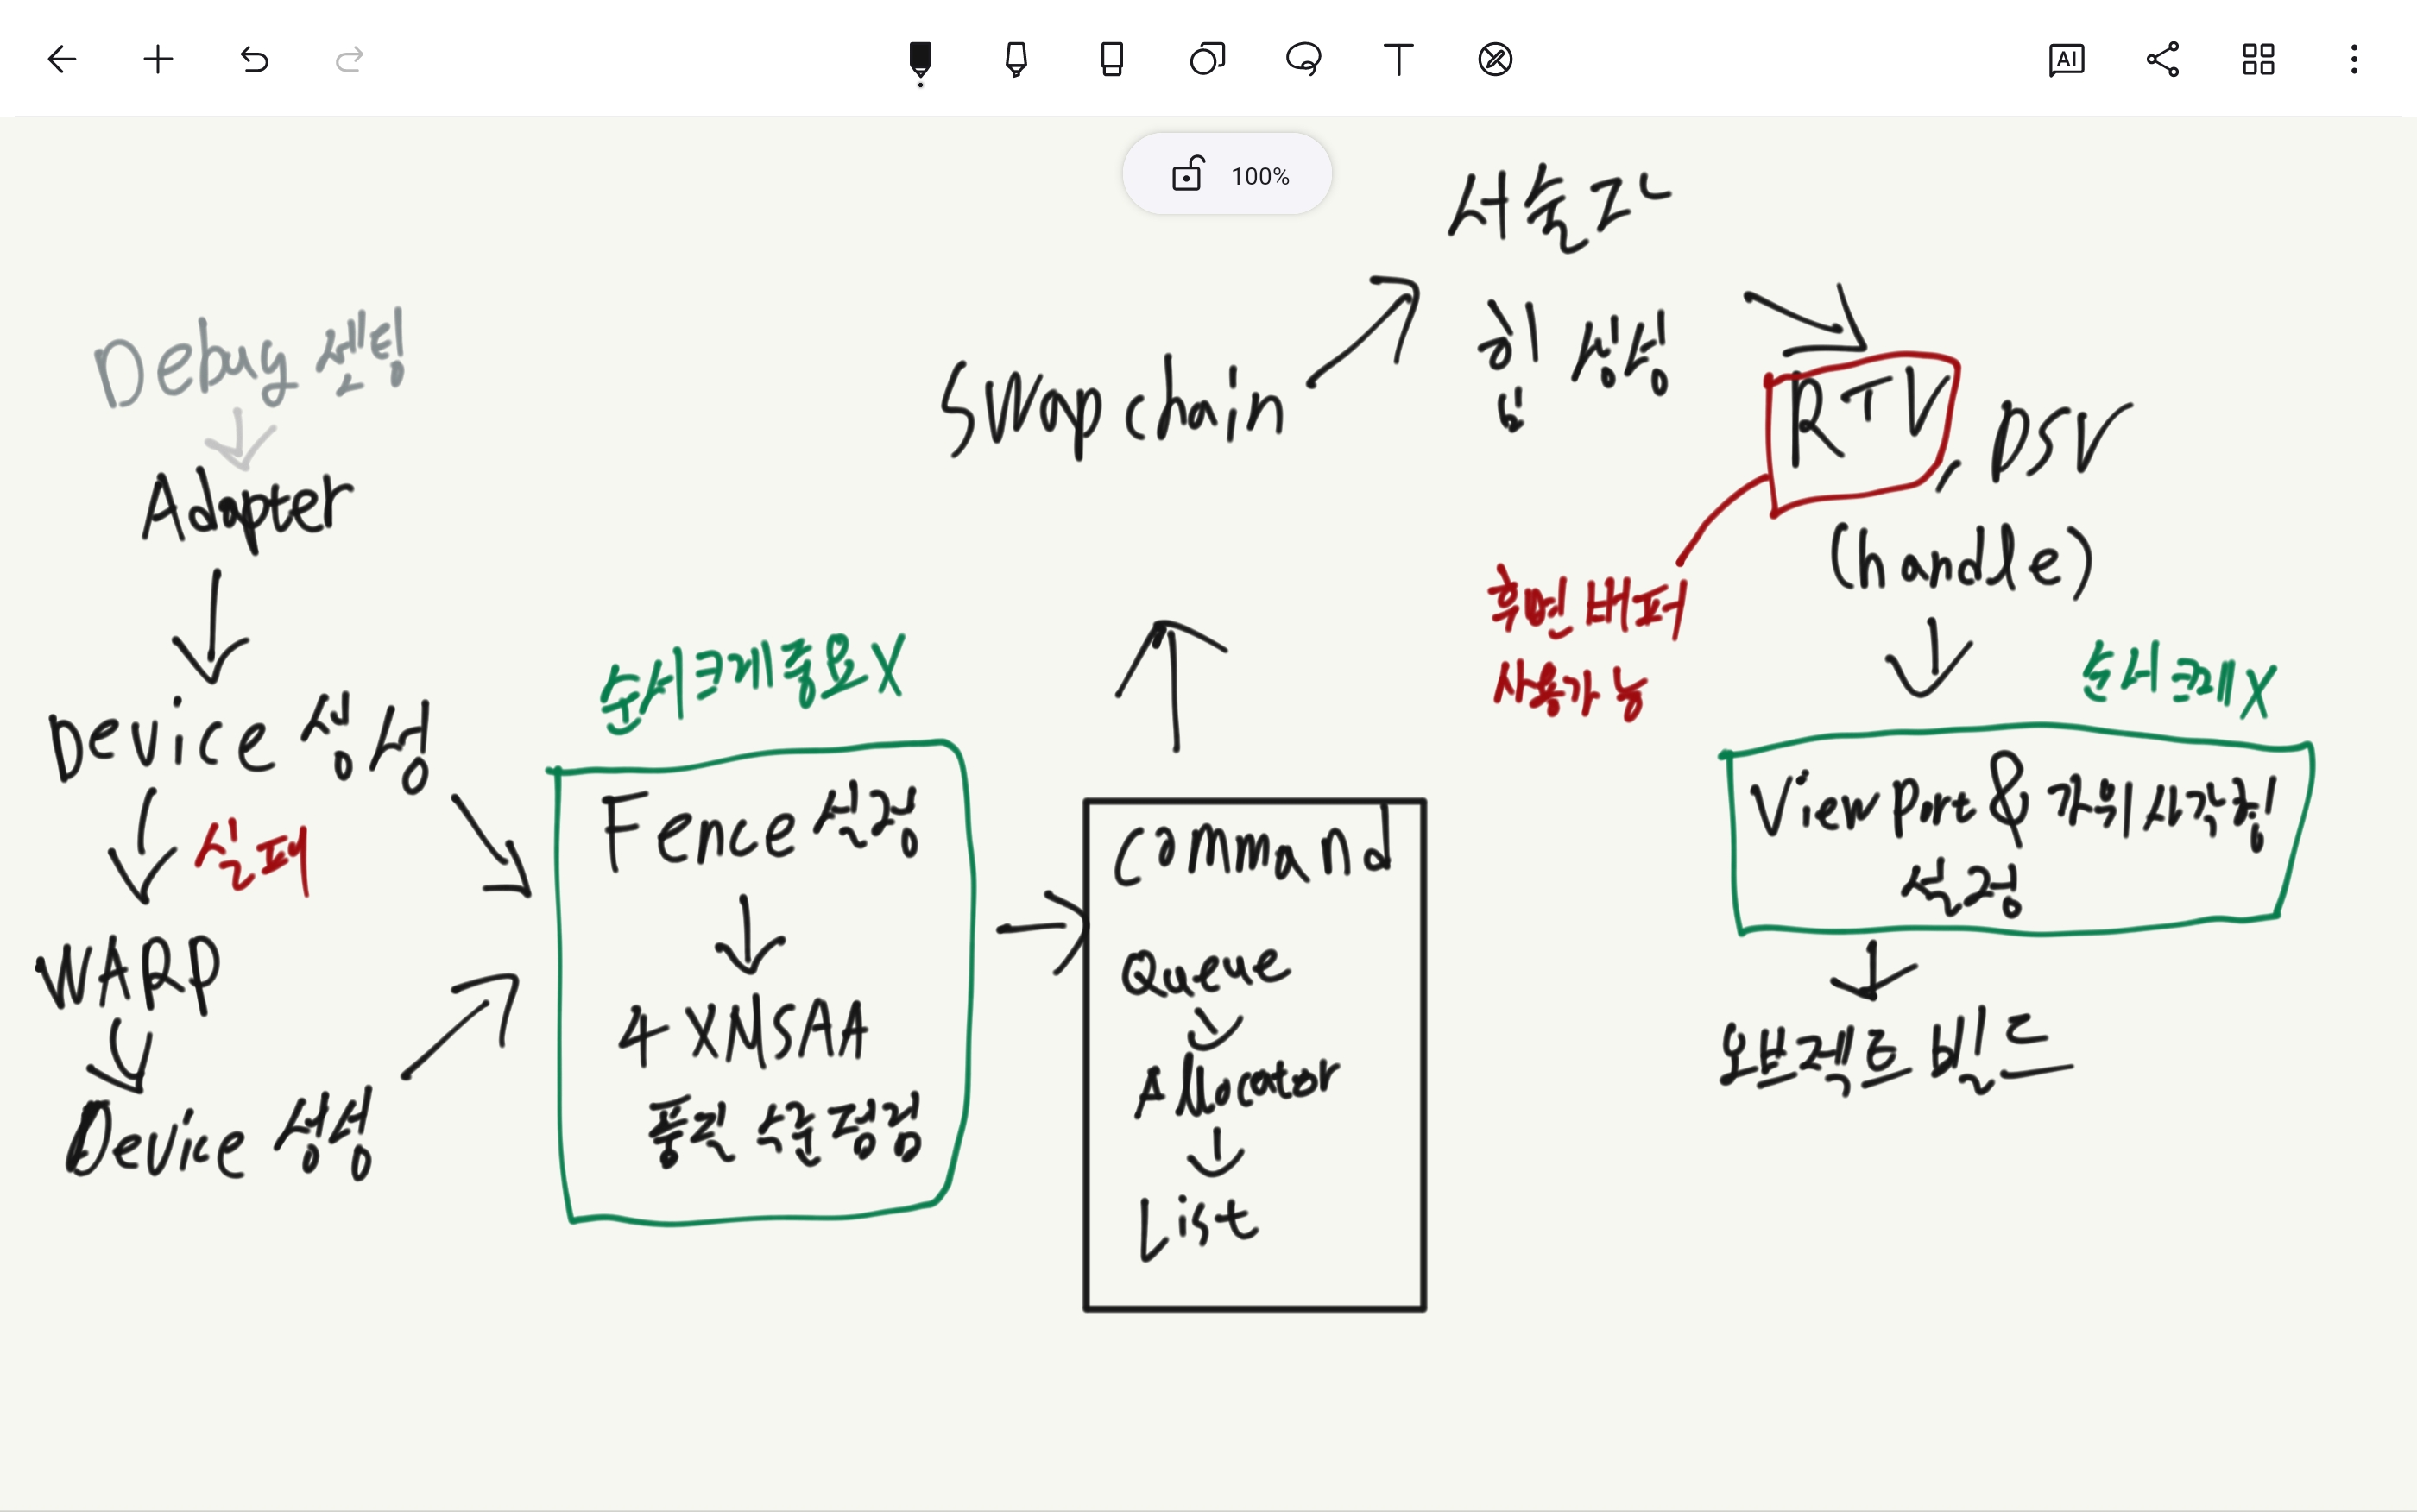 AI
100%
Debug 세팅
Adapter
Device 생성
실패
WARP
Device 생성
순서 크게 중요 X
Fence 설정
4 XMSAA
품질 수준 점검
Command
Queue
Allocator
List
Swap chain
서술자
힙 생성
RTV, DSV
(handle)
후면 버퍼
사용가능
순서 크게 X
View port & 가위 사각형
설정
오브젝트 빌드